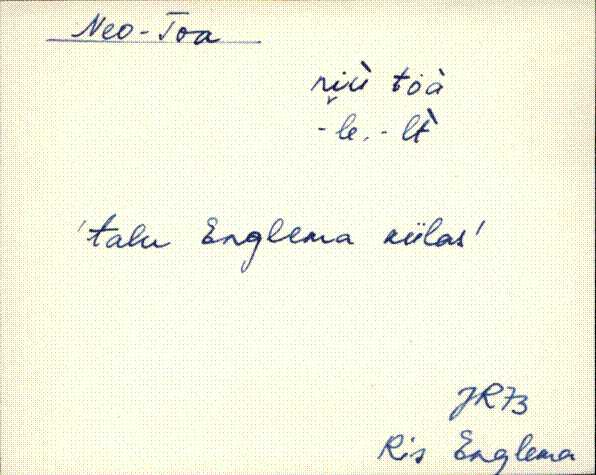 Neo-Toa
niù̬ töà
-le, -lt̀
'talu Englema külas'
JR73
Ris Englema